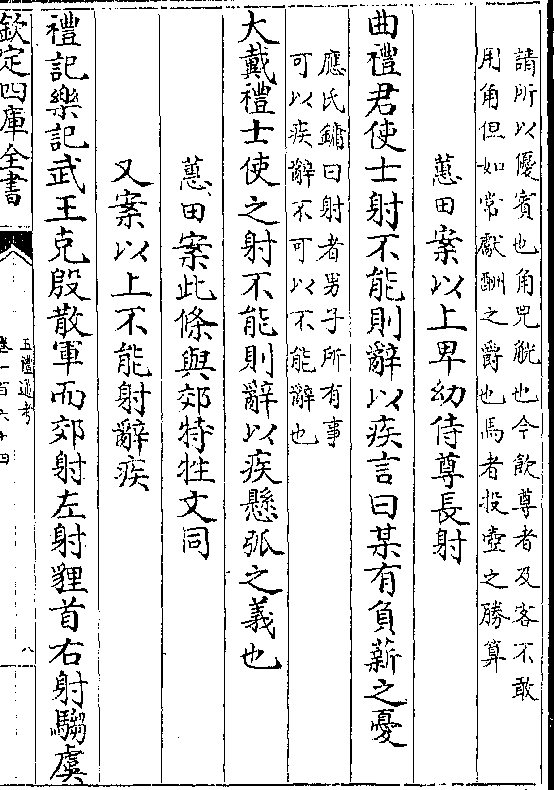 請所以優賓也角兕觥也今飲尊者及客不敢
用角但如常獻酬之爵也馬者投壺之勝算
蕙田案以上卑幼侍尊長射
曲禮君使士射不能則辭以疾言曰某有負薪之憂
應氏鏞曰射者男子所有事
可以疾辭不可以不能辭也
大戴禮士使之射不能則辭以疾懸弧之義也
蕙田案此條與郊特牲文同
又案以上不能射辭疾
禮記樂記武王克殷散軍而郊射左射貍首右射騶虞
欽定四庫全書
五禮通考
卷一百六十四
八